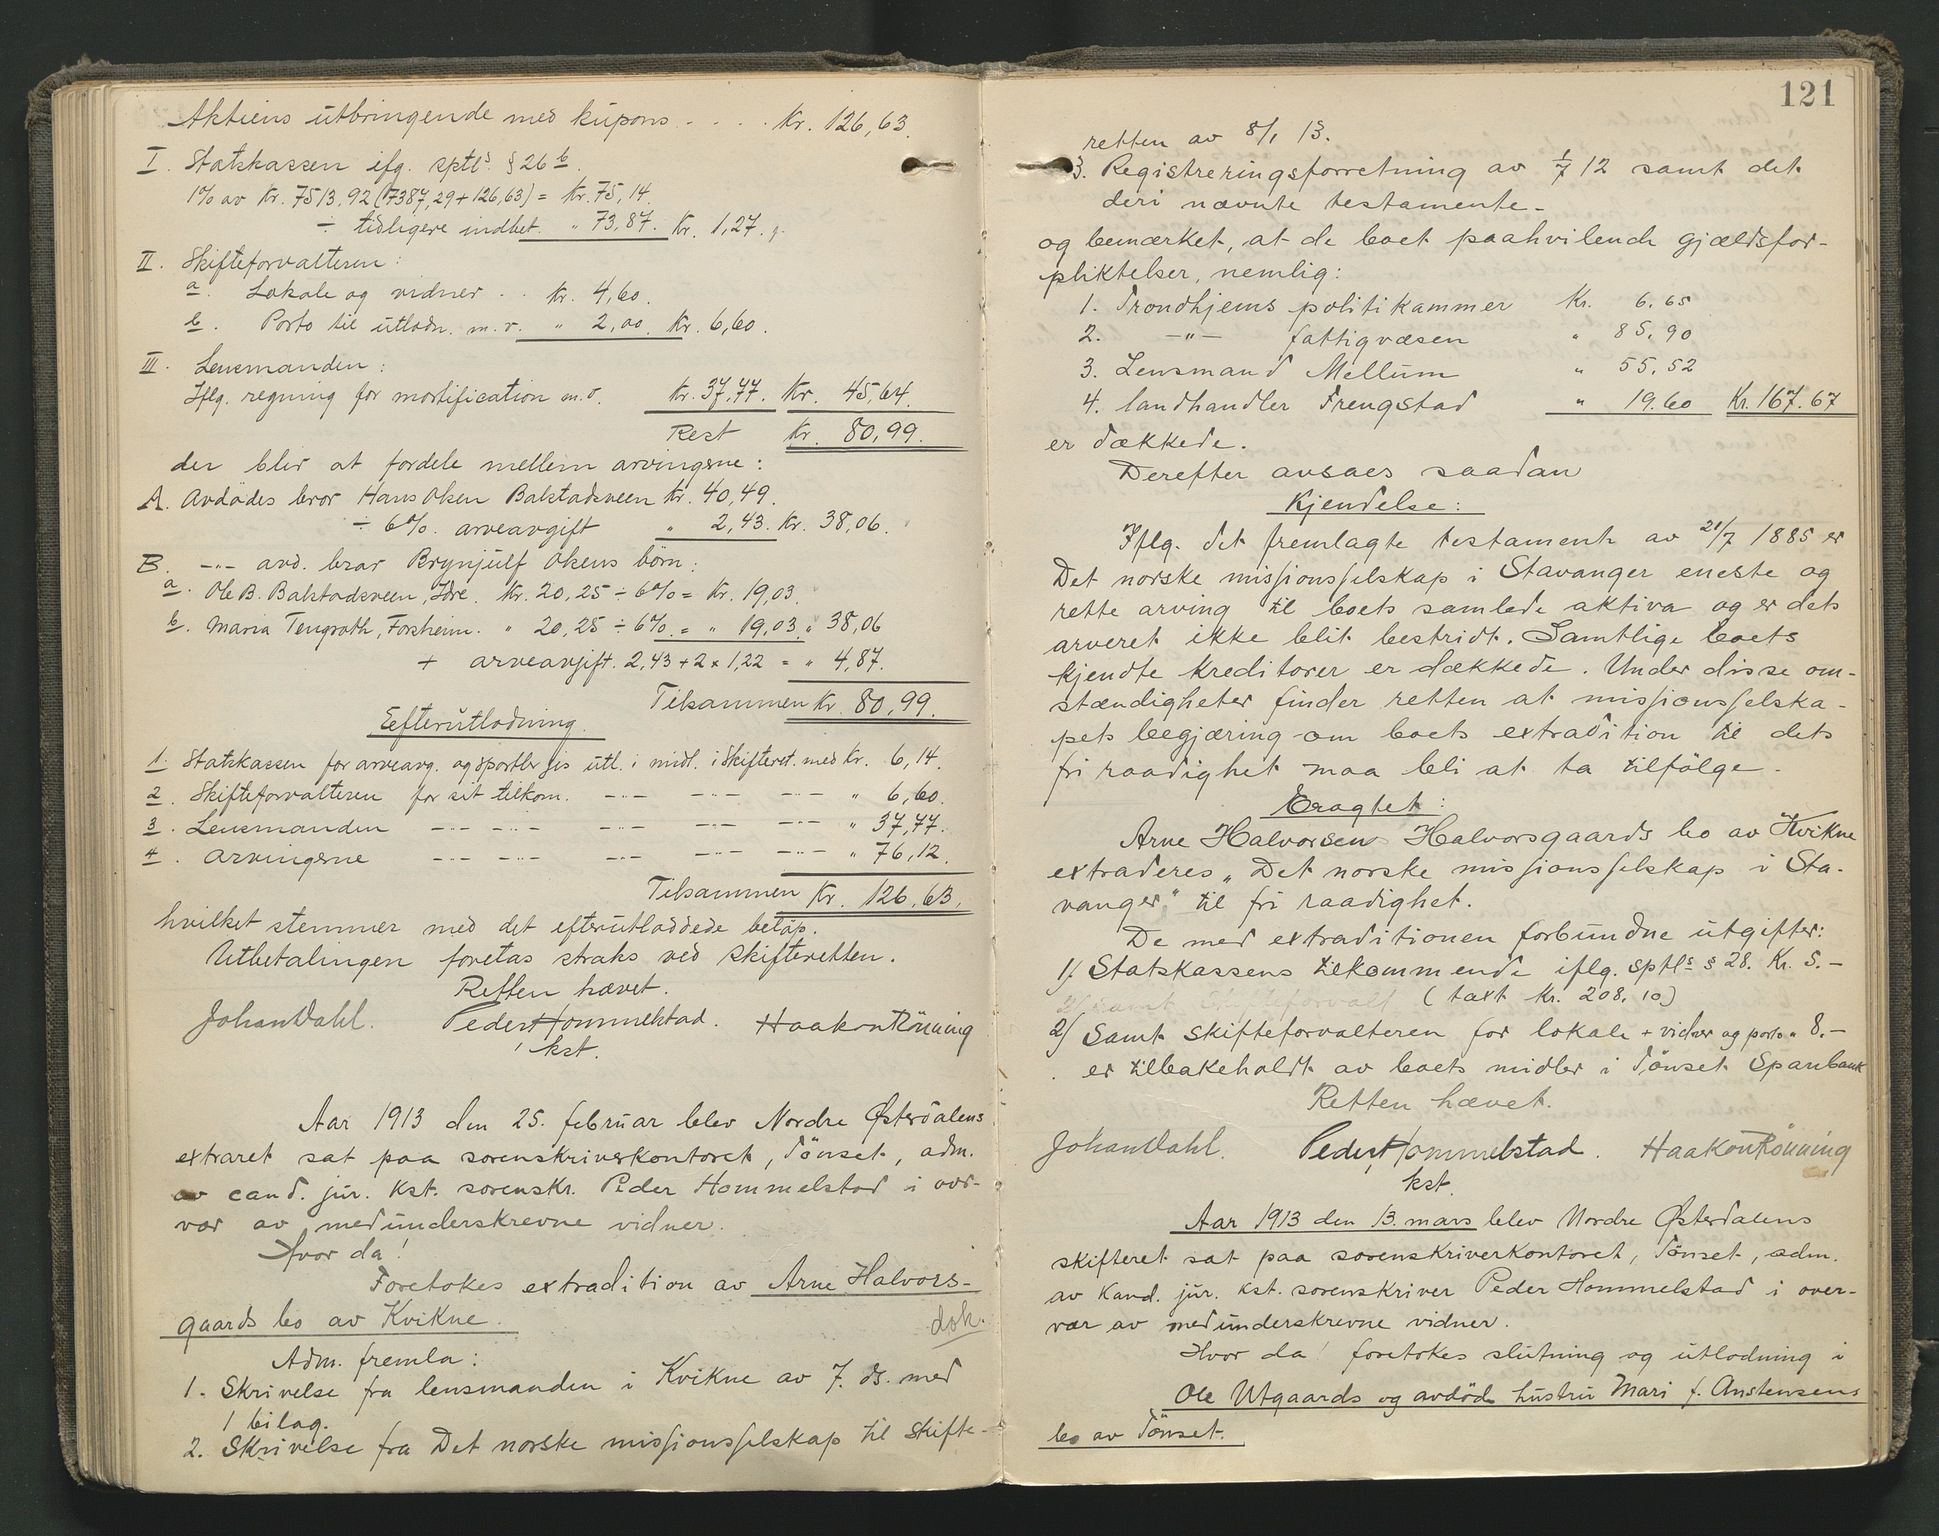 Aktiens utbringende med kupons - . . . Kr. 126,63.
I. Statskassen ifg. sptl§ § 26 b.
1% av Kr. 7513,92 (7387,29 + 126,63) = Kr. 75,14.
÷ tidligere indbet. " 73,87. Kr. 1,27.
II. Skifteforvalteren:
a. Lokale og vidner . . Kr. 4,60.
b. Porto til utlodn. m.v. " 2,00. Kr. 6,60.
III. Lensmanden:
Iflg. regning for mortification m.v. Kr. 37,77. Kr. 45,64.
Rest Kr. 80,99.
der blir at fordele mellem arvingerne:
A. Avdødes bror Hans Olsen Balstadsveen Kr. 40,49.
÷ 6% arveavgift " 2,43. Kr. 38,06.
B. -"- avd. bror Brynjulf Olsens børn:
a. Ole B. Balstadsveen, Idre. Kr. 20,25 ÷ 6% = Kr. 19,03.
b. Maria Tengroth, Forsheim. " 20,25 ÷ 6% = " 19,03. " 38,06
+ arveavgift. 2,43 + 2 x 1,22 = " 4,87.
Tilsammen Kr. 80,99.
Efterutlodning.
1. Statskassen for arveavg. og sportler gis utl. i midl. i Skifteret. med Kr. 6,14.
2. Skifteforvalteren for sit tilkom. -"- -"- -"- " 6,60.
3. Lensmanden -"- -"- -"- -"- -"- " 37,77.
4. Arvingerne -"- -"- -"- -"- -"- " 76,12.
Tilsammen Kr. 126,63.
hvilket stemmer med det efterutloddede beløp.
Utbetalingen foretas straks ved skifteretten.
Retten hævet.
Johan Dahl. Peder Hommelstad. Haakon Rönning
kst.
Aar 1913 den 25. februar blev Nordre Østerdalens
extraret sat paa sorenskriverkontoret, Tönset, adm.
av cand. jur. kst. sorenskr. Peder Hommelstad i over-
vær av medunderskrevne vidner.
Hvor da!
Foretokes extradition av Arne Halvors-
gaards bo av Kvikne.
dok.
Adm. fremla:
1. Skrivelse fra lensmanden i Kvikne av 7. ds. med
1 bilag.
2. Skrivelse fra Det norske missionsselskap til skifte-
121
retten av 8/1 13.
3. Registreringsforretning av 1/7 12 samt det
deri nævnte testamente -
og bemærket, at de boet paahvilende gjældsfor-
pliktelser, nemlig:
1. Trondhjems politikammer Kr. 6.65
2. -"- fattigvæsen " 85,90
3. Lensmand Mellum " 55,52
4. landhandler Frengstad " 19.60 Kr. 167.67
er dækkede.
Derefter avsaes saadan
Kjendelse:
Iflg. det fremlagte testamente av 21/7 1885 er
Det norske missionsselskap i Stavanger eneste og
rette arving til boets samlede aktiva og er dets
arveret ikke blit bestridt. Samtlige boets
kjendte kreditorer er dækkede. Under disse om-
stændigheter finder retten at missionsselska-
pets begjæring om boets extradition til dets
fri raadighet maa bli at ta tilfölge.
Eragtet:
Arne Halvorsen Halvorsgaards bo av Kvikne
extraderes „Det norske missionsselskap i Sta-
vanger" til fri raadighet.
De med extraditionen forbundne utgifter:
1/. Statskassens tilkommende iflg. sptl§ § 28. Kr. 5.-
2/ samt skifteforvalt (taxt Kr. 208,10)
2/ Samt skifteforvalteren for lokale + vidner og porto " 8.-
er tilbakeholdt av boets midler i Tönset Sparebank
Retten hævet.
Johan Dahl. Peder Hommelstad. Haakon Rönning
kst.
Aar 1913 den 13. mars blev Nordre Østerdalens
skifteret sat paa sorenskriverkontoret, Tönset, adm.
av kand. jur. kst. sorenskriver Peder Hommelstad i over-
vær av medunderskrevne vidner.
Hvor da! foretokes slutning og utlodning i
Ole Utgaards og avdöde hustru Mari f. Anstensens
bo av Tönset.